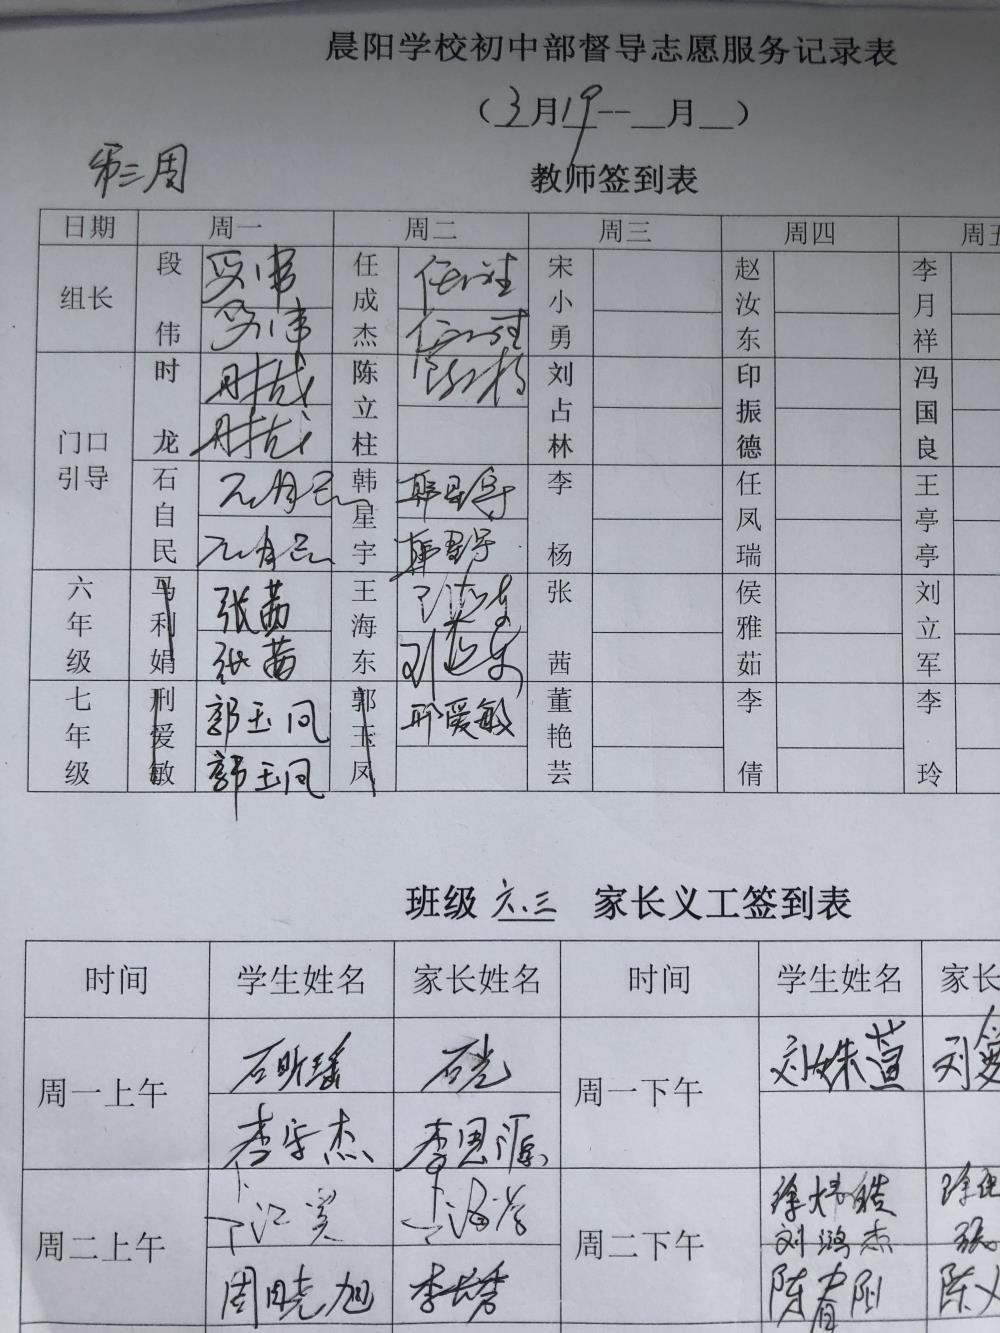 晨阳学校初中部督导志愿服务记录表
（3月19--__月__）
第三周
教师签到表
日期 周一 周二 周三 周四 周五
组长 段伟 段伟 任成杰 宋小勇 赵汝东 李月祥
段伟
门口引导 时龙 时龙 陈立柱 陈立柱 刘占林 印振德 冯国良
时龙
石自民 韩星宇 韩星宇 李杨 任凤瑞 王亭亭
韩星宇
六年级 马利娟 张茜 王海东 张茜 侯雅茹 刘立军
张茜
七年级 刑爱敏 郭玉凤 郭玉凤 邢爱敏 董艳芸 李倩 李玲
郭玉凤
班级 六.三 家长义工签到表
时间 学生姓名 家长姓名 时间 学生姓名 家长
周一上午 石昕瑶 石光 周一下午 刘姝萱 刘
李宇杰 李思源
周二上午 周二下午 徐炜皓 徐
刘鸿杰 张
周晓旭 李长秀 陈 阳 陈